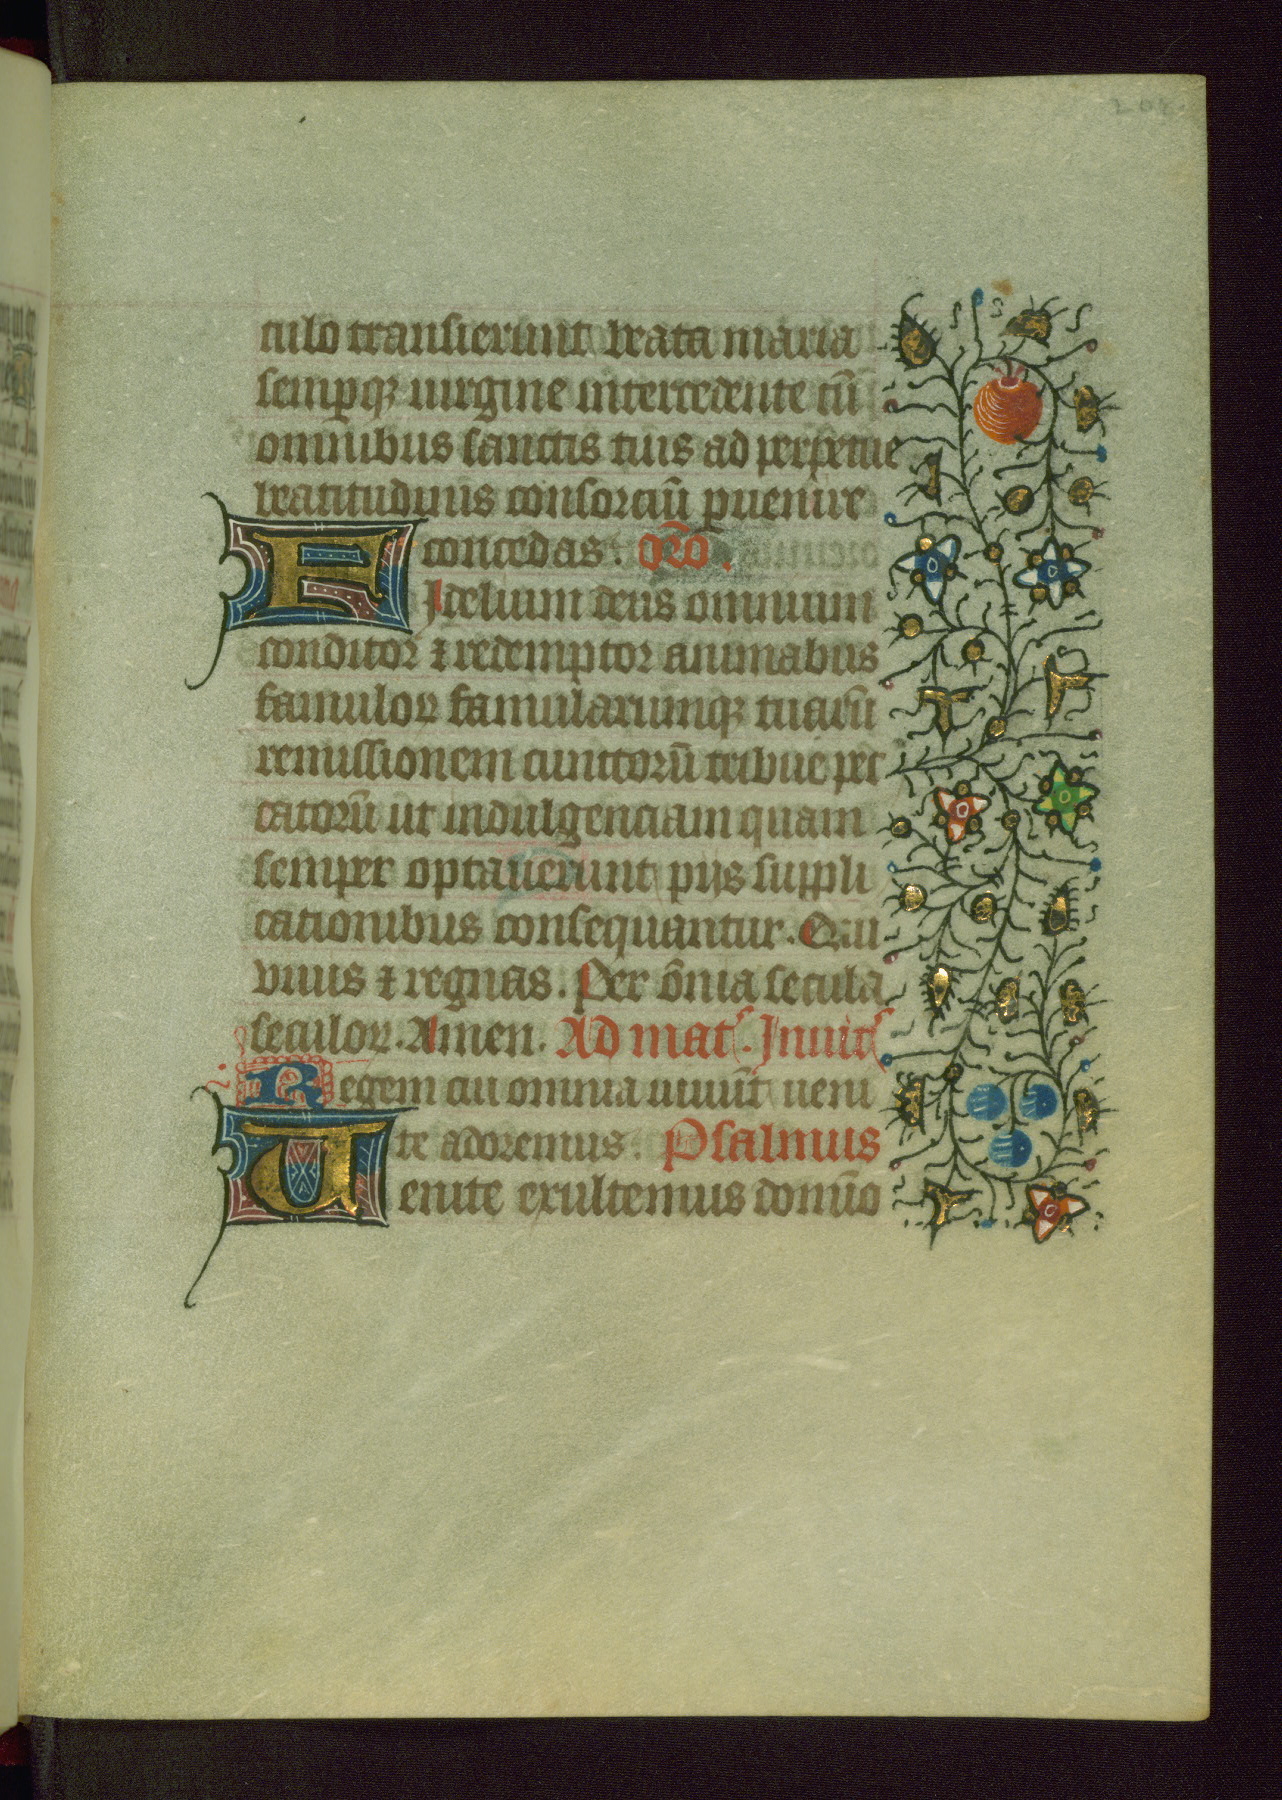 culo transierunt beata maria
semp̲qꝫ uirgine intercedente cū
omnibus sanctis tuis ad perpetue
beatitudinis consorciū p̲uenire
concedas. Or̄o.
Fidelium deus omnium
conditor ⁊ redemptor animabus
famuloꝝ famularumqꝫ tuarū
remissionem cunctorū tribue pec
catorū ut indulgenciam quam
semper optauerunt pijs suppli
cationibus consequantur. Qui
viuis ⁊ regnas. Per ōnia secula
seculoꝝ. Amen. Ad mat. Inuit
Regem cui omnia uiuūt ueni
te adoremus. Psalmus
Uenite exultemus domīo